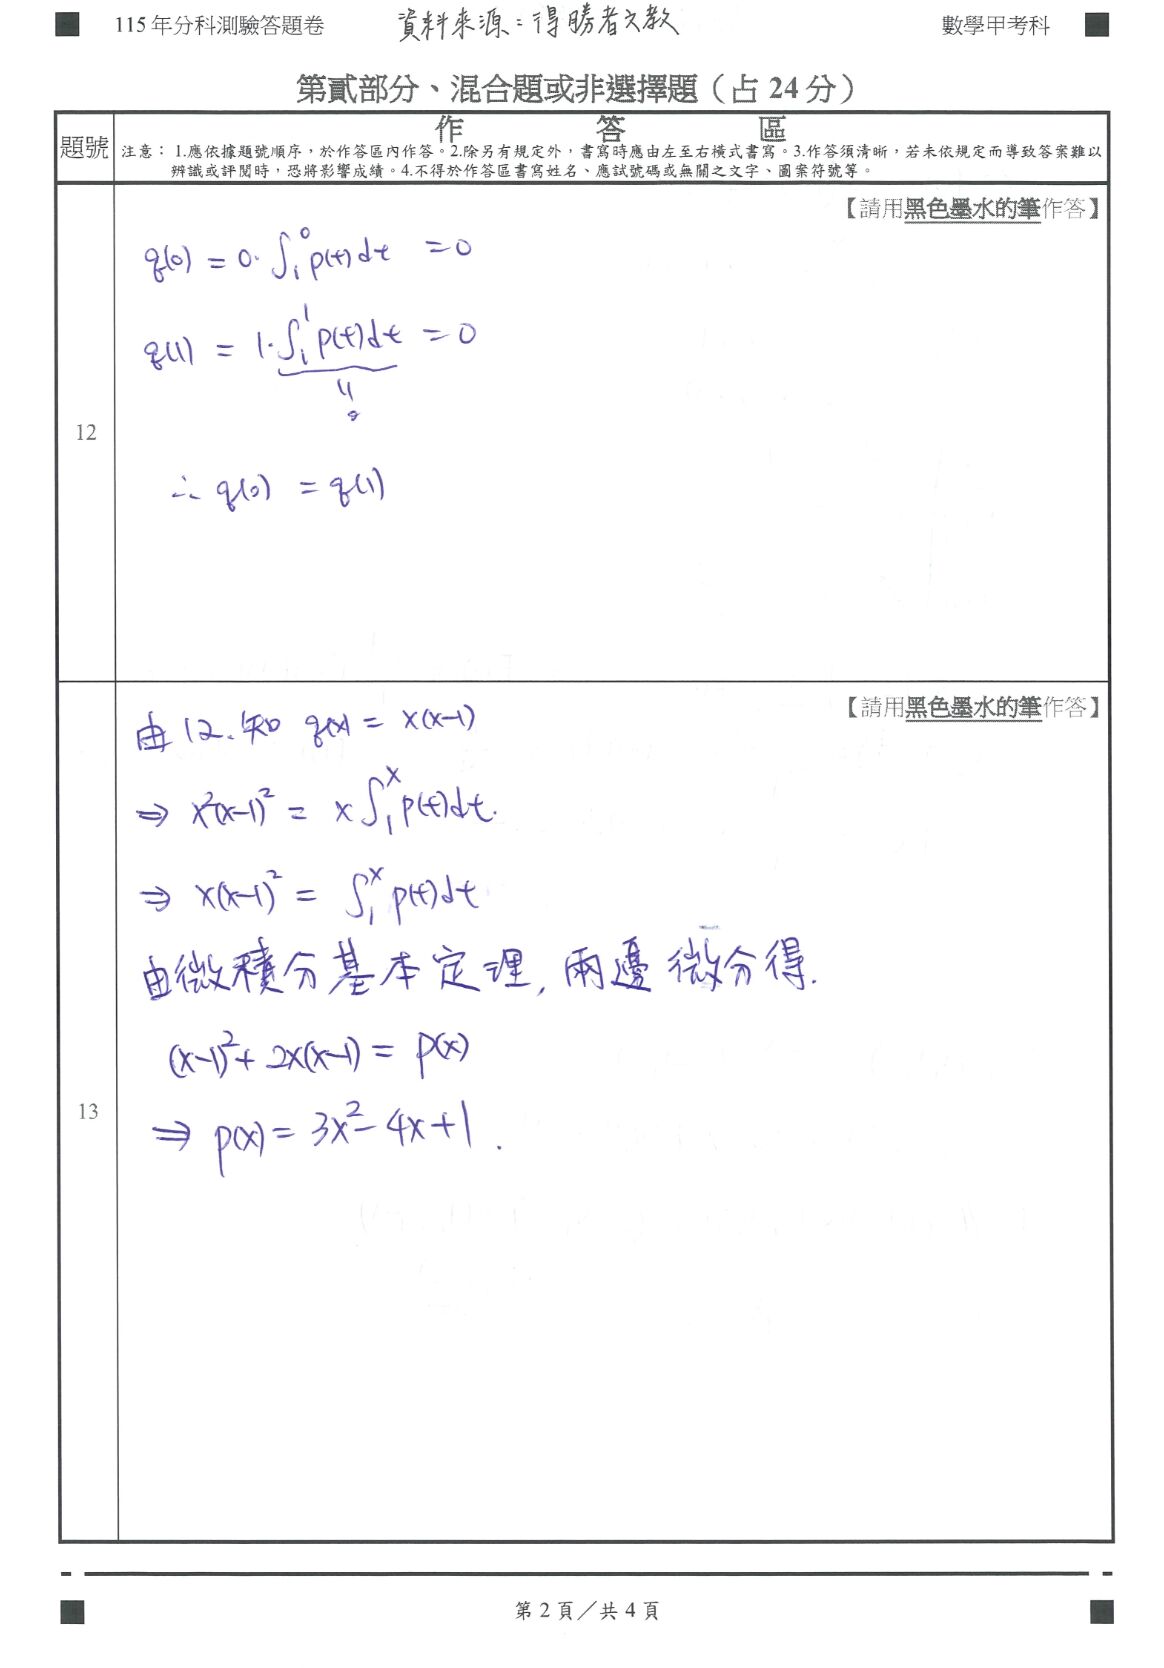 115年分科測驗答題卷
資料來源：得勝者文教
數學甲考科
第貳部分、混合題或非選擇題（占 24 分）
題號
作 答 區
注意：1.應依據題號順序，於作答區內作答。2.除另有規定外，書寫時應由左至右橫式書寫。3.作答須清晰，若未依規定而導致答案難以
辨識或評閱時，恐將影響成績。4.不得於作答區書寫姓名、應試號碼或無關之文字、圖案符號等。
12
【請用黑色墨水的筆作答】
q(0) = 0·∫₁⁰ p(t)dt = 0
q(1) = 1·∫₁¹ p(t)dt = 0
∴ q(0) = q(1)
13
【請用黑色墨水的筆作答】
由12.知 q(x) = x(x-1)
⇒ x²(x-1)² = x∫₁ˣ p(t)dt.
⇒ x(x-1)² = ∫₁ˣ p(t)dt
由微積分基本定理, 兩邊微分得.
(x-1)² + 2x(x-1) = p(x)
⇒ p(x) = 3x² - 4x + 1.
第 2 頁／共 4 頁